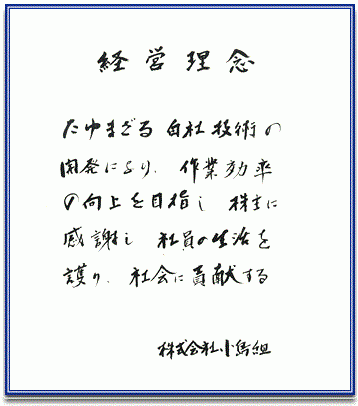 経営理念
たゆまざる 自社技術の
開発により、作業効率
の向上を目指し 株主に
感謝し 社員の生活を
護り、社会に貢献する
株式会社小島組